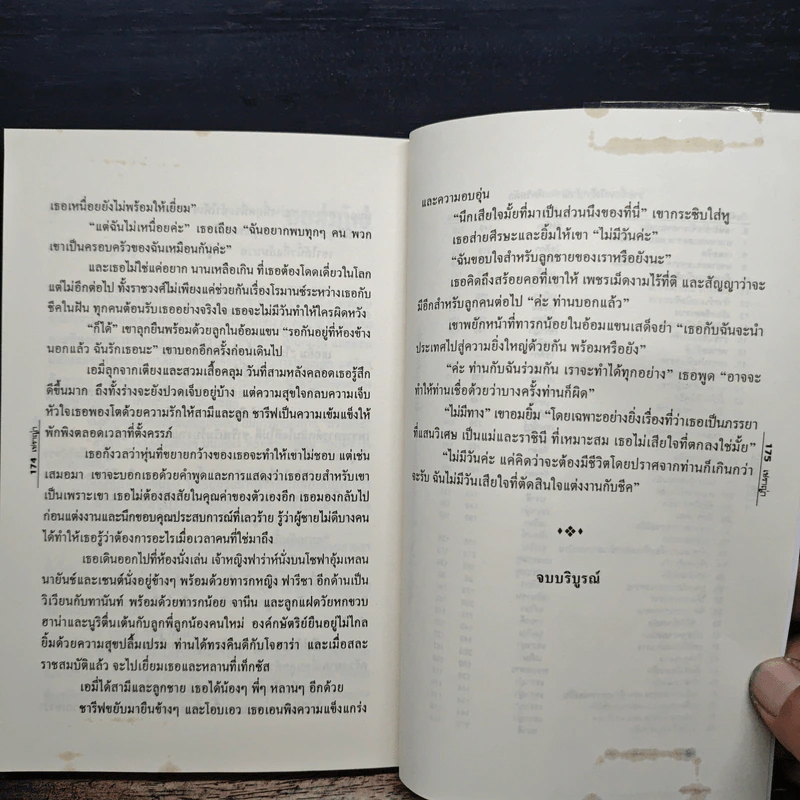 เธอเหนื่อยยังไม่พร้อมให้เยี่ยม”
“แต่ฉันไม่เหนื่อยค่ะ” เธอเถียง “ฉันอยากพบทุกๆ คน พวก
เขาเป็นครอบครัวของฉันเหมือนกันค่ะ”
และเธอไม่ใช่แค่อยาก นานเหลือเกิน ที่เธอต้องโดดเดี่ยวในโลก
แต่ไม่อีกต่อไป ทั้งราชวงศ์ไม่เพียงแค่ช่วยกันเรื่องโรมานซ์ระหว่างเธอกับ
ชีคในฝัน ทุกคนต้อนรับเธออย่างจริงใจ เธอจะไม่มีวันทำให้ใครผิดหวัง
“ก็ได้” เขาลุกยืนพร้อมด้วยลูกในอ้อมแขน “รอกันอยู่ที่ห้องข้าง
นอกแล้ว ฉันรักเธอนะ” เขาบอกอีกครั้งก่อนเดินไป
เอมี่ลุกจากเตียงและสวมเสื้อคลุม วันที่สามหลังคลอดเธอรู้สึก
ดีขึ้นมาก ถึงทั้งร่างจะยังปวดเจ็บอยู่บ้าง แต่ความสุขใจกลบความเจ็บ
หัวใจเธอพองโตด้วยความรักให้สามีและลูก ชารีฟเป็นความเข้มแข็งให้
พักพิงตลอดเวลาที่ตั้งครรภ์
เธอกังวลว่าหุ่นที่ขยายกว้างของเธอจะทำให้เขาไม่ชอบ แต่เช่น
เสมอมา เขาจะบอกเธอด้วยคำพูดและการแสดงว่าเธอสวยสำหรับเขา
เป็นเพราะเขา เธอไม่ต้องสงสัยในคุณค่าของตัวเองอีก เธอมองกลับไป
ก่อนแต่งงานและนึกขอบคุณประสบการณ์ที่เลวร้าย รู้ว่าผู้ชายไม่ดีบางคน
ได้ทำให้เธอรู้ว่าต้องการอะไรเมื่อเวลาคนที่ใช่มาถึง
เธอเดินออกไปที่ห้องนั่งเล่น เจ้าหญิงฟาร่าห์นั่งบนโซฟาอุ้มเหลน
นายันซ์และเชนต์นั่งอยู่ข้างๆ พร้อมด้วยทารกหญิง ฟารีชา อีกด้านเป็น
วิเวียนกับทานันท์ พร้อมด้วยทารกน้อย จานีน และลูกแฝดวัยหกขวบ
ฮาน่าและนูริตื่นเต้นกับลูกพี่ลูกน้องคนใหม่ องค์กษัตริย์ยืนอยู่ไม่ไกล
ยิ้มด้วยความสุขปลื้มเปรม ท่านได้ทรงคืนดีกับโจฮาร่า และเมื่อสละ
ราชสมบัติแล้ว จะไปเยี่ยมเธอและหลานที่เท็กซัส
เอมี่ได้สามีและลูกชาย เธอได้น้องๆ พี่ๆ หลานๆ อีกด้วย
ชารีฟขยับมายืนข้างๆ และโอบเอว เธอเอนพิงความแข็งแกร่ง
174 เฟราญ่า
และความอบอุ่น
“นึกเสียใจมั้ยที่มาเป็นส่วนนึงของที่นี่” เขากระซิบใส่หู
เธอส่ายศีรษะและยิ้มให้เขา “ไม่มีวันค่ะ”
“ฉันขอบใจสำหรับลูกชายของเราหรือยังนะ”
เธอคิดถึงสร้อยคอที่เขาให้ เพชรเม็ดงามไร้ที่ติ และสัญญาว่าจะ
มีอีกสำหรับลูกคนต่อไป “ค่ะ ท่านบอกแล้ว”
เขาพยักหน้าที่ทารกน้อยในอ้อมแขนเสด็จย่า “เธอกับฉันจะนำ
ประเทศไปสู่ความยิ่งใหญ่ด้วยกัน พร้อมหรือยัง”
“ค่ะ ท่านกับฉันร่วมกัน เราจะทำได้ทุกอย่าง” เธอพูด “อาจจะ
ทำให้ท่านเชื่อด้วยว่าบางครั้งท่านก็ผิด”
“ไม่มีทาง” เขาอมยิ้ม “โดยเฉพาะอย่างยิ่งเรื่องที่ว่าเธอเป็นภรรยา
ที่แสนวิเศษ เป็นแม่และราชินี ที่เหมาะสม เธอไม่เสียใจที่ตกลงใช่มั้ย”
“ไม่มีวันค่ะ แค่คิดว่าจะต้องมีชีวิตโดยปราศจากท่านก็เกินกว่า
จะรับ ฉันไม่มีวันเสียใจที่ตัดสินใจแต่งงานกับชีค”
จบบริบูรณ์
175 เฟราญ่า